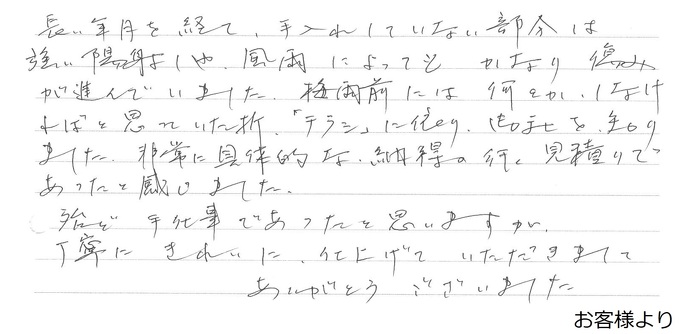 長い年月を経て、手入れしていない部分は
強い陽射しや、風雨によっても かなり 傷み
が進んでいました。梅雨前には 何とか、しなけ
ればと思っていた折、「チラシ」に依り、御社を知り
ました。非常に具体的な、納得の行く見積りで
あったと感じました。
殆ど 手仕事であったと思いますが、
丁寧に きれいに、仕上げて いただきまして
ありがとう ございました
お客様より